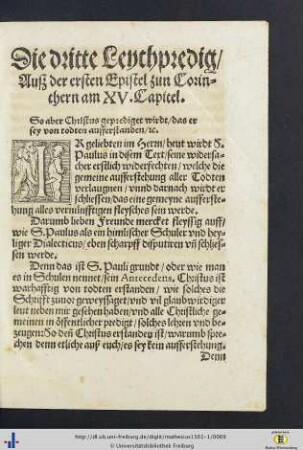 Die dritte Leychpredig/
Auß der ersten Epistel zun Corin-
thern am XV. Capitel.
So aber Christus geprediget wirdt/das er
sey von todten aufferstanden/ec.
IR geliebten im Herrn/heut wirdt S.
Paulus in disem Text/seine widersa-
cher erstlich widerfechten/welche die
gemeine aufferstehung aller Todten
verlaugnen/vnnd darnach wirdt er
schliessen/das eine gemeyne aufferste-
hung alles vernünfftigen fleysches sein werde.
Darumb lieben Freunde mercket fleyssig auff/
wie S. Paulus als ein himlischer Schuler vnd hey-
liger Dialecticus/eben scharpff disputiren vñ schlies-
sen werde.
Denn das ist S. Pauli grundt/oder wie man
es in Schulen nennet/sein Antecedens, Christus ist
warhafftig von todten erstanden/wie solches die
Schrifft zuuor geweyssaget/vnd vil glaubwirdiger
leut neben mir gesehen haben/vnd alle Christliche ge-
meinen in öffentlicher predigt/solches lehren vnd be-
zeugen: So deñ Christus erstanden ist/warumb spre-
chen denn etliche auß euch/es sey kein aufferstehung.
Denn
http://dl.ub.uni-freiburg.de/diglit/mathesius1561-1/0069
© Universitätsbibliothek Freiburg